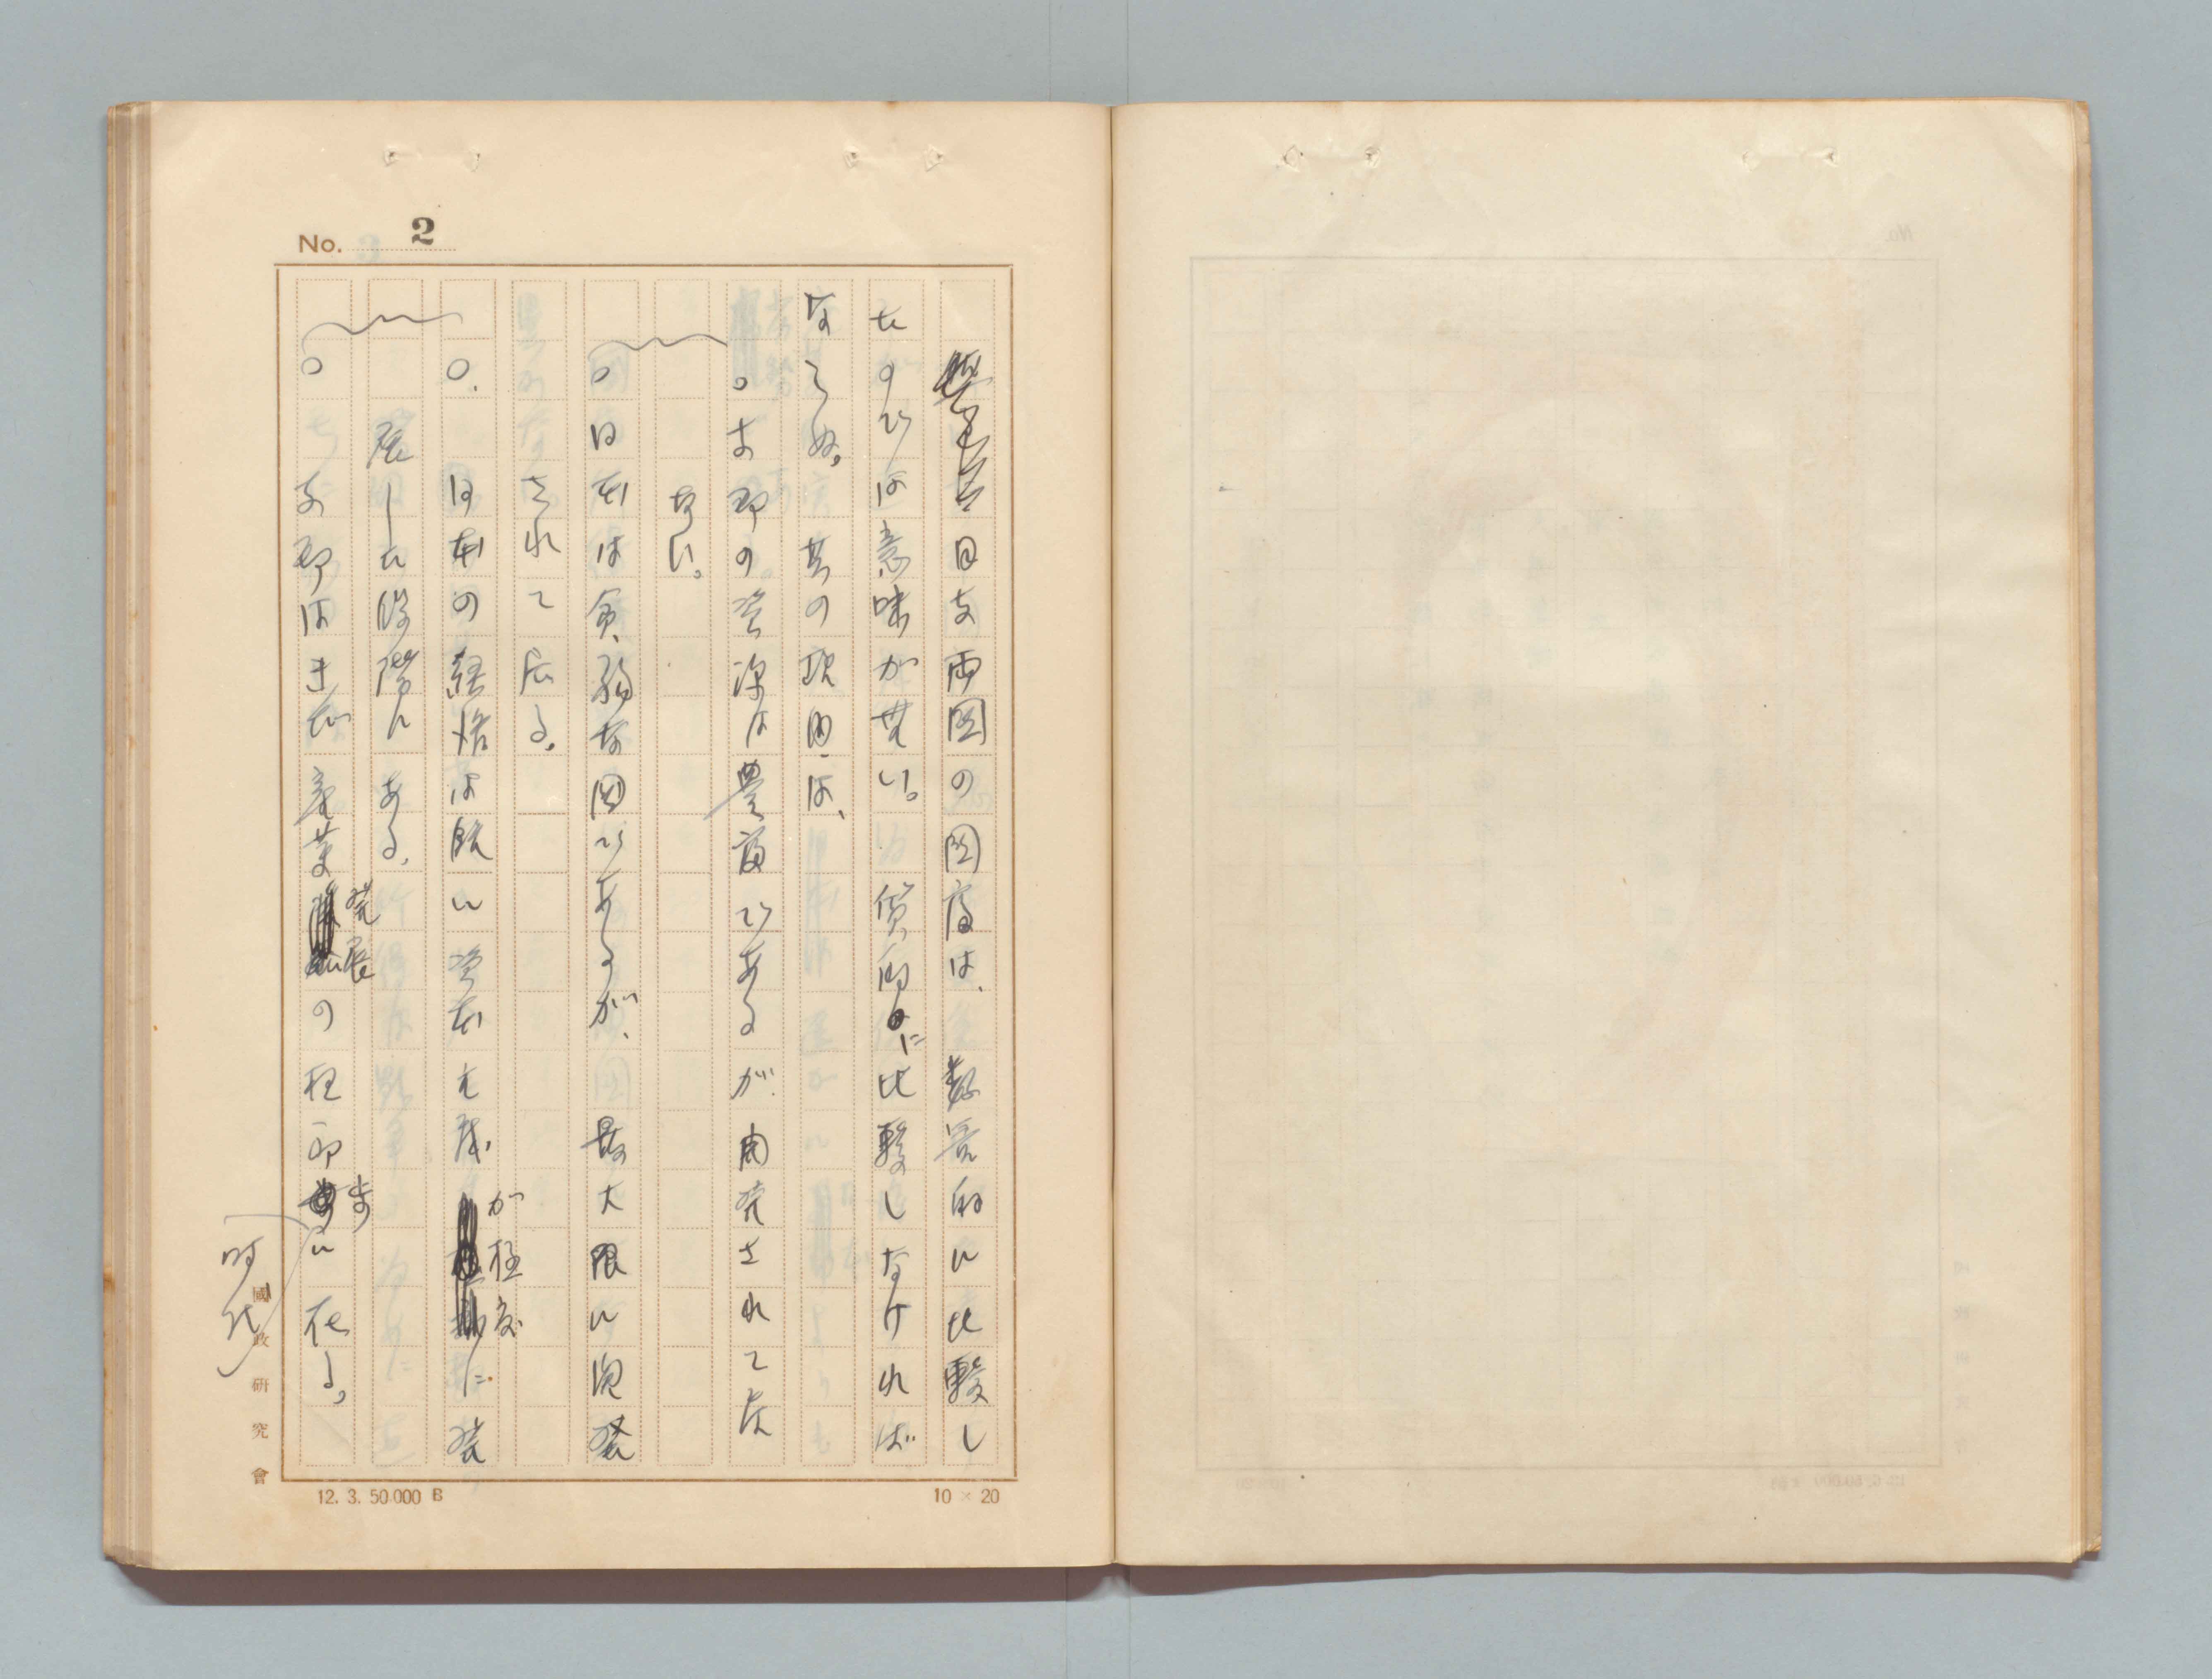 No. 2
日支両国の国富は、数字的に比較し
たのでは意味が無い。質的に比較しなければ
ならぬ。其の理由は、
○支那の資源は豊富であるが開発されて居
ない。
○日本は貧弱な国であるが、最大限に開発
されて居る。
○日本の経済は既に資本主義が極度に発
展した段階にある。
○支那はまだ産業発展の極初歩に在る。
時代
國政研究會
12. 3. 50.000 B
10 × 20